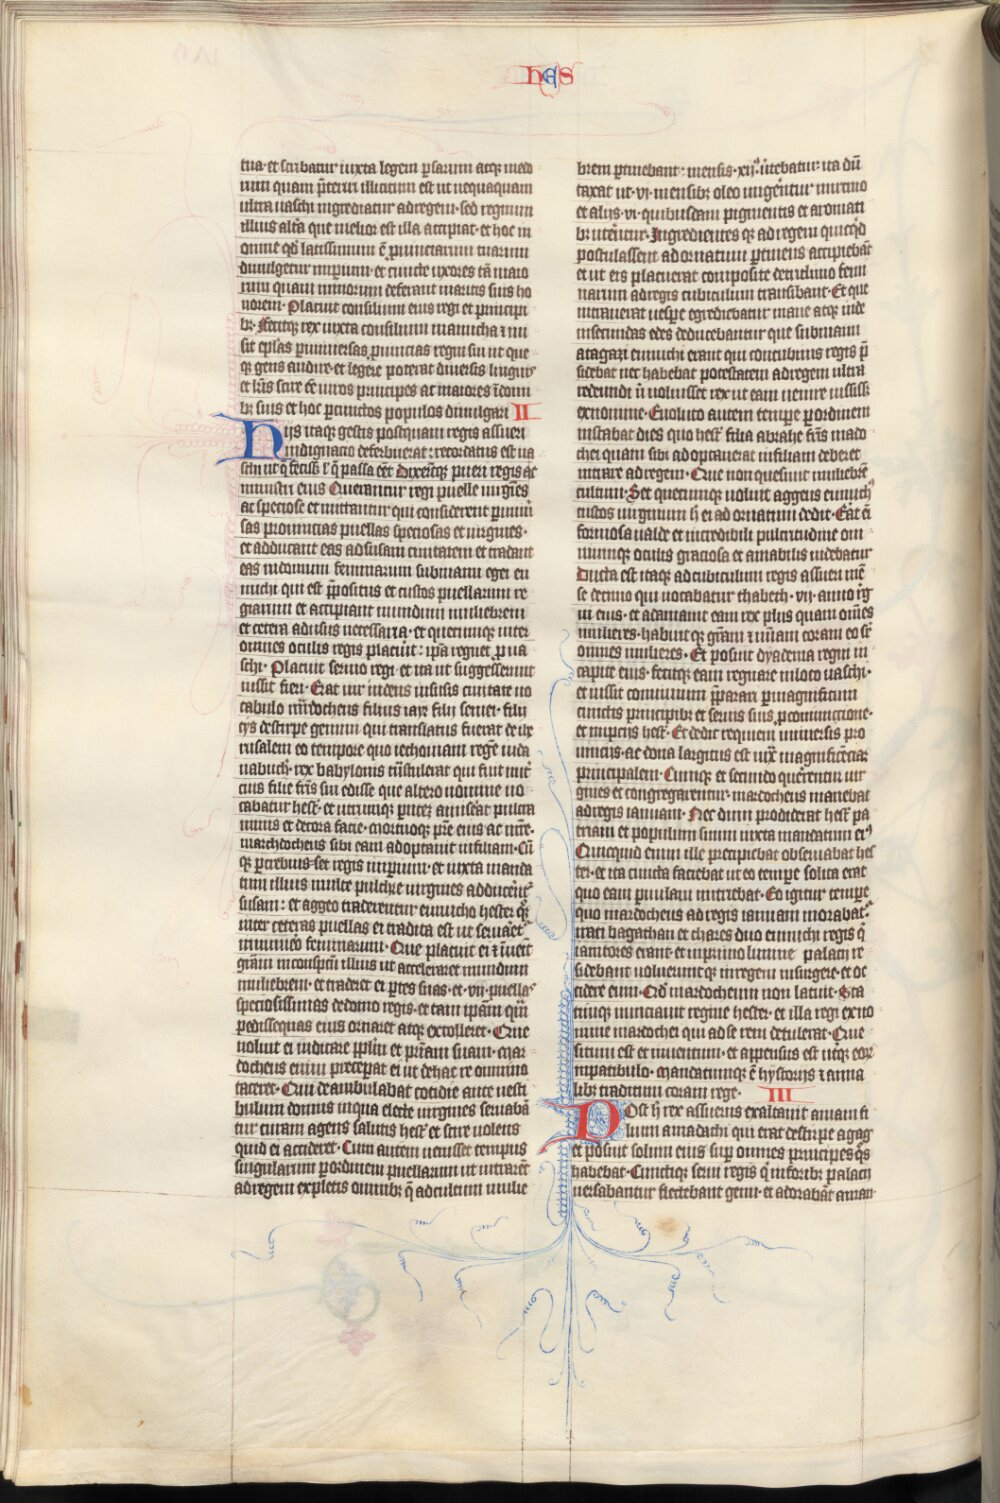 hes
tua· et scribatur iuxta legem p̱sarum atq̱ med
orum quam p̄teriri illicitum est ut nequaquam
ultra uasthi ingrediatur ad regem· sed regnum
illius alt̄a que melior est illa accipiat· et hoc in
omne qd̄ latissimum ē ꝓuinciarum tuarum
diuulgetur imꝑium· et cuncte uxores tā maio
rum quam minorum deferant maritis suis ho
norem· Placuit consilium eius regi et principi
bꝫ· fecitqꝫ rex iuxta consilium manucha ⁊ mi
sit ep̄las ꝑ uniuersas ꝓuincias regni sui ut que
qꝫ gens audire et legere poterat diuersis linguis
et lr̄is scire eē uiros principes ac maiores ī dom
bꝫ suis et hoc ꝑ cunctos populos diuulgari II
Hijs itaqꝫ gestis postquam regis assueri
indignacio deferbuerat: recordatus est ua
sthi ut q̄ fecisset l̄ q̄ passa eēt dixerūtqꝫ pueri regis ac
ministri eius Querantur regi puelle uirgīes
ac speciose et mittantur qui considerent ꝑ uniū
sas prouincias puellas speciosas et uirgines·
et adducant eas ad susam ciuitatem et tradant
eas in domum feminarum sub manu egei eu
nuchi qui est p̄positus et custos puellarum re
giarum et accipiant mundum muliebrem
et cetera ad usus necessaria· et quecumqꝫ inter
omnes oculis regis placuīt: ip̄a regnet ꝓ ua
sthi· Placuit sermo regi· et ita ut suggesserunt
iussit fieri· Erat uir iudeus in susis ciuitate uo
cabulo mardocheus filius iayr filii semei· filii
cys de stirpe gemini qui translatus fuerat de ihe
rusalem eo tempore quo iechoniam regē iuda
nabuch· rex babylonis trāstulerat qui fuit nut̄
cius filie fr̄is sui edisse que altero nomine uo
cabatur hest̄· et utrumqꝫ parētē amiserat pulcra
nimis et decora facie· Mortuoqꝫ pr̄e eius ac mr̄e·
mardocheus sibi eam adoptauit in filiam· Cū
qꝫ ꝑcrebuisset regis imꝑium· et iuxta manda
tum illius multe pulchre uirgines adducerēt̄
susam: et aggeo traderentur eunucho hester qꝫ
inter ceteras puellas ei tradita est ut seruaret̄
in numero feminarum· Que placuit ei ⁊ inuenit
grām in conspectu illius ut acceleraret mundum
muliebrem· et traderet ei ꝑtes suas· et· vii· puellas
speciosissimas de domo regis· et tam ip̄am quā
pedissequas eius ornaret atqꝫ excolleret· Que
noluit ei indicare pp̄lm et pr̄iam suam· Mar
docheus enim preceperat ei ut de hac re omnino
taceret· Qui deambulabat cotidie ante uesti
bulum domus in qua electe uirgines seruabā
tur curam agens salutis hest̄ et scire uolens
quid ei accideret· Cum autem uenisset tempus
singularum ꝑ ordinem puellarum ut intrarēt
ad regem expletis omnibꝫ q̄ ad cultum mulie
brem ꝑtinebant: mensis· xiiᵘˢ uertebatur: ita dū
taxat ut· vi· mensibꝫ oleo ungērentur mirtino
et aliis· vi· quibusdam pigmentis et aromati
bꝫ uterentur· Ingredientes qꝫ ad regem quicqd̄
postulassent ad ornatum ꝑtinens accipiebāt
et ut eis placuerat composite de triclinio femi
narum ad regis cubiculum transibant· Et que
intrauerat uesꝑe egrediebatur mane atqꝫ inde
in secundas edes deducebantur que sub manu
atagazi eunuchi erant qui concubinis regis p̄
sidebat nec habebat potestatem ad regem ultra
redeundi n̄ uoluisset rex ut eam uenire iussisset
ex nomine· Euoluto autem tempe ꝑ ordinem
instabat dies quo hest̄ filia abrahe fr̄is mado
chei quam sibi adoptauerat in filiam deberet
intrare ad regem· Que non quesiuit muliebrē
cultum· Set quecumqꝫ uoluit aggeus eunuchꝰ
custos uirginum h̄ ei ad ornatum dedit· Eat eī
formosa ualde et incredibili pulcritudine om
niumqꝫ oculis graciosa et amabilis uidebatur
Ducta est itaqꝫ ad cubiculum regis assueri mē
se decimo qui uocabatur thabeth· vii· anno rḡ
ni eius· et adamauit eam rex plus quam om̄es
mulieres· habuitqꝫ grām ⁊ mīam coram eo sr̄
omnes mulieres· Et posuit dyadema regni in
capite eius· fecitqꝫ eam regnare in loco uasthi·
et iussit conuiuium p̄parari ꝑ magnificum
cunctis principibꝫ et seruis suis ꝓ coniunctione·
et nupcijs hest̄· Et dedit requiem uniuersis pro
uincijs· ac dona largitus est iux̄ magnificēciā
principalem· Cumqꝫ et secundo quererentur uir
gines et congregarentur· mardocheus manebat
ad regis ianuam· Nec dum prodiderat hest̄ pa
triam et populum suum iuxta mandatum eiꝰ
Quicquid enim ille precipiebat obseruabat hes
ter· et ita cuncta faciebat ut eo tempe solita erat
quo eam ꝑuulam nutriebat· Eo igitur tempe
quo mardocheus ad regis ianuam morabat̄·
irati bagathan et thares duo eunuchi regis q̄
ianitores erant· et in primo limine palacij re
sidebant uolueruntqꝫ in regem insurgere· et oc
cidere eum· Qd̄ mardocheum non latuit· Sta
timqꝫ nunciauit regine hester· et illa regi ex no
mine mardochei qui ad se rem detulerat· Que
situm est et inuentum· et appensus est utqꝫ eorū
in patibulo· Mandatumqꝫ ē hystorijs ⁊ anna
libꝫ traditum coram rege· III
Post h̄ rex assuerus exaltauit aman fi
lium amadachi qui erat de stirpe agag
et posuit solium eius suꝑ omnes principes q̄s
habebat· Cunctiqꝫ serui regis q̄ in foribꝫ palacij
uersabantur flectebant genu· et adorabāt aman·